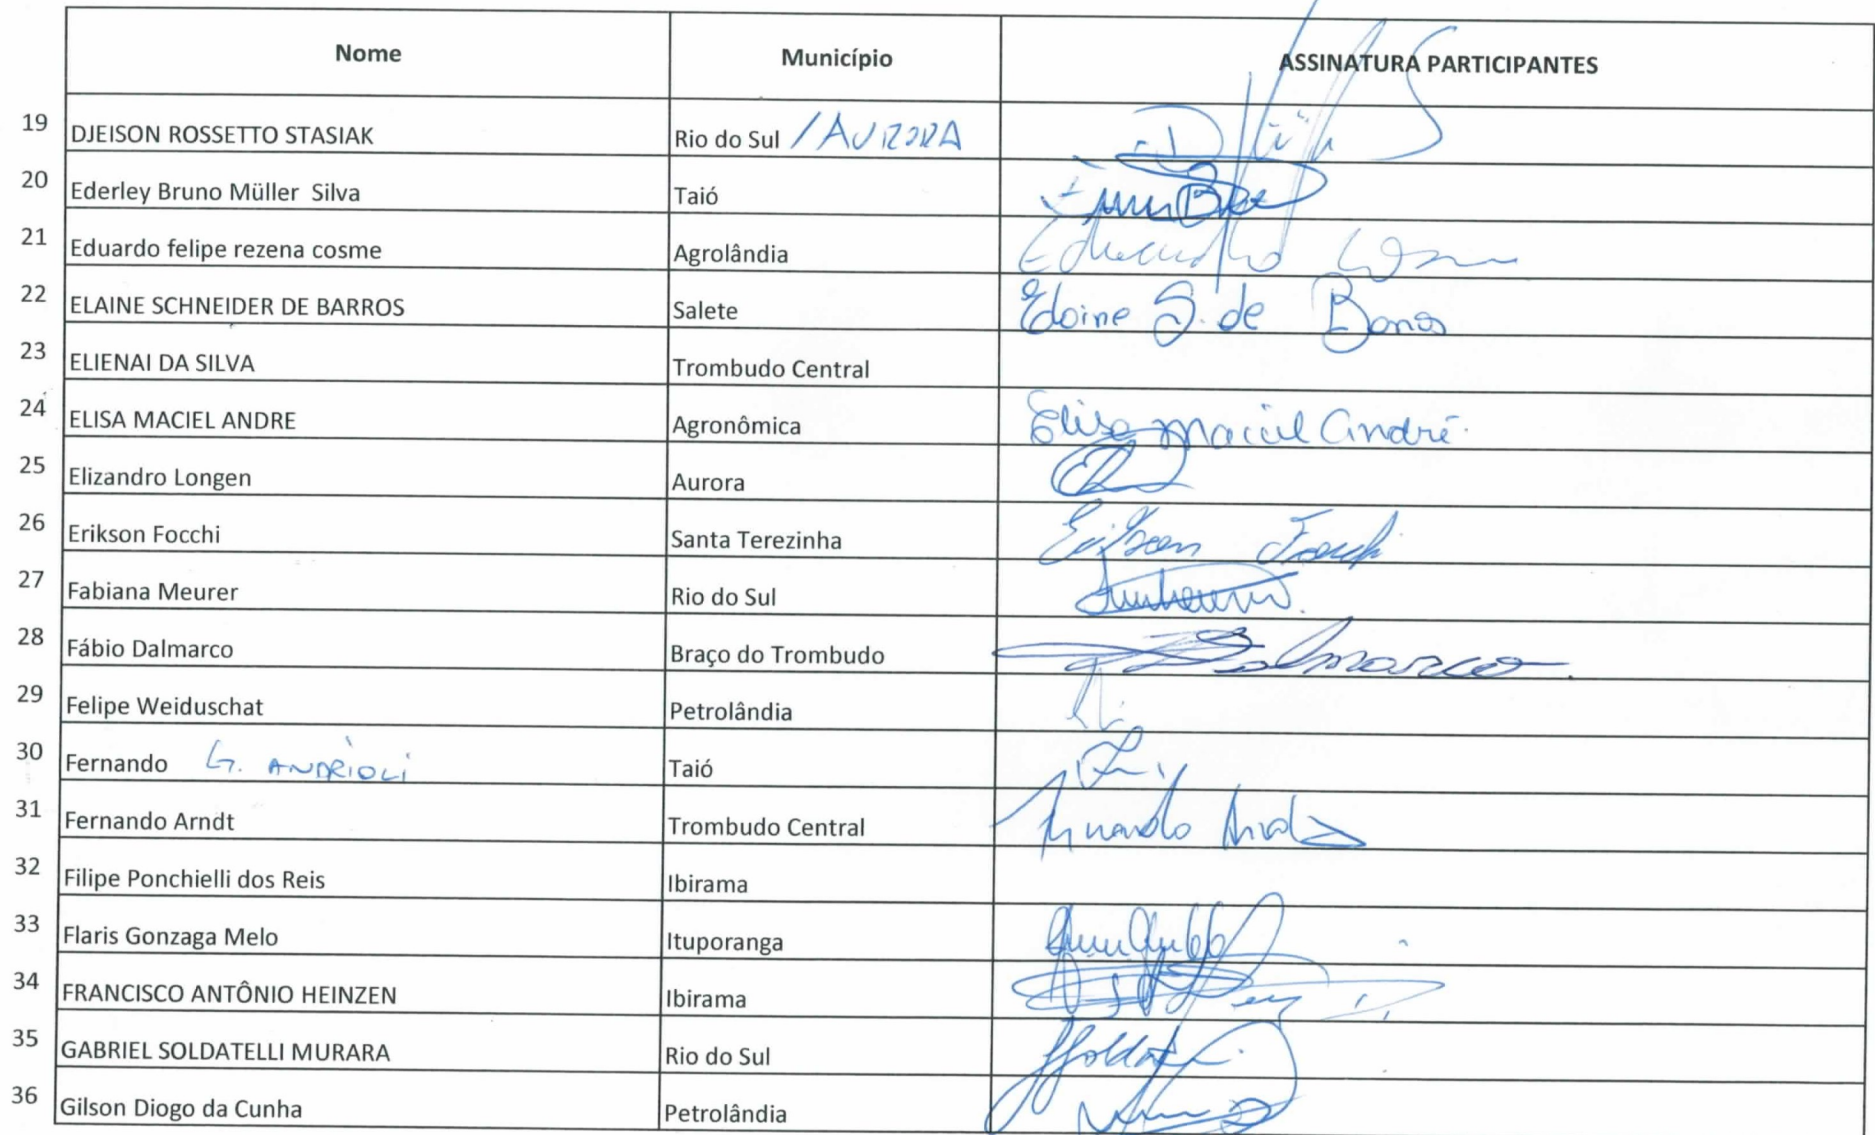 Nome Município ASSINATURA PARTICIPANTES
19 DJEISON ROSSETTO STASIAK Rio do Sul / AURORA
20 Ederley Bruno Müller Silva Taió
21 Eduardo felipe rezena cosme Agrolândia Eduardo
22 ELAINE SCHNEIDER DE BARROS Salete Elaine S. de Barros
23 ELIENAI DA SILVA Trombudo Central
24 ELISA MACIEL ANDRE Agronômica Elisa Maciel André
25 Elizandro Longen Aurora
26 Erikson Focchi Santa Terezinha Erikson Focchi
27 Fabiana Meurer Rio do Sul
28 Fábio Dalmarco Braço do Trombudo Dalmarco
29 Felipe Weiduschat Petrolândia
30 Fernando G. ANDRIOLI Taió
31 Fernando Arndt Trombudo Central Fernando Arndt
32 Filipe Ponchielli dos Reis Ibirama
33 Flaris Gonzaga Melo Ituporanga
34 FRANCISCO ANTÔNIO HEINZEN Ibirama
35 GABRIEL SOLDATELLI MURARA Rio do Sul
36 Gilson Diogo da Cunha Petrolândia